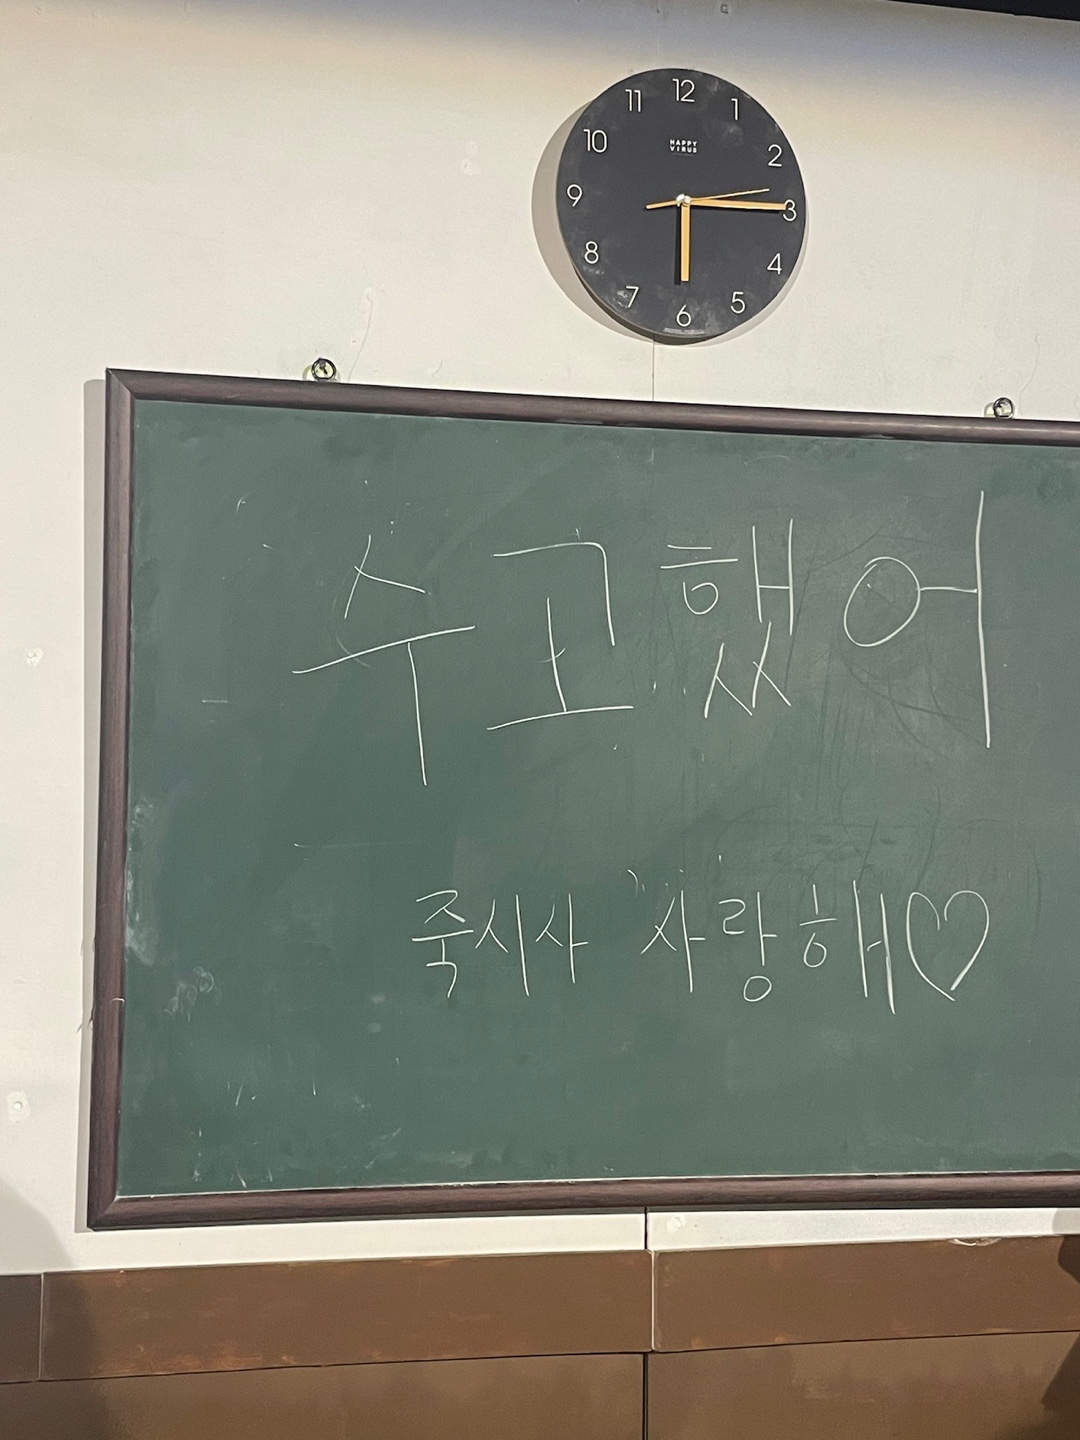 12
1
2
3
4
5
6
7
8
9
10
11
HAPPY
VIRUS
수고했어
죽시사 사랑해♡